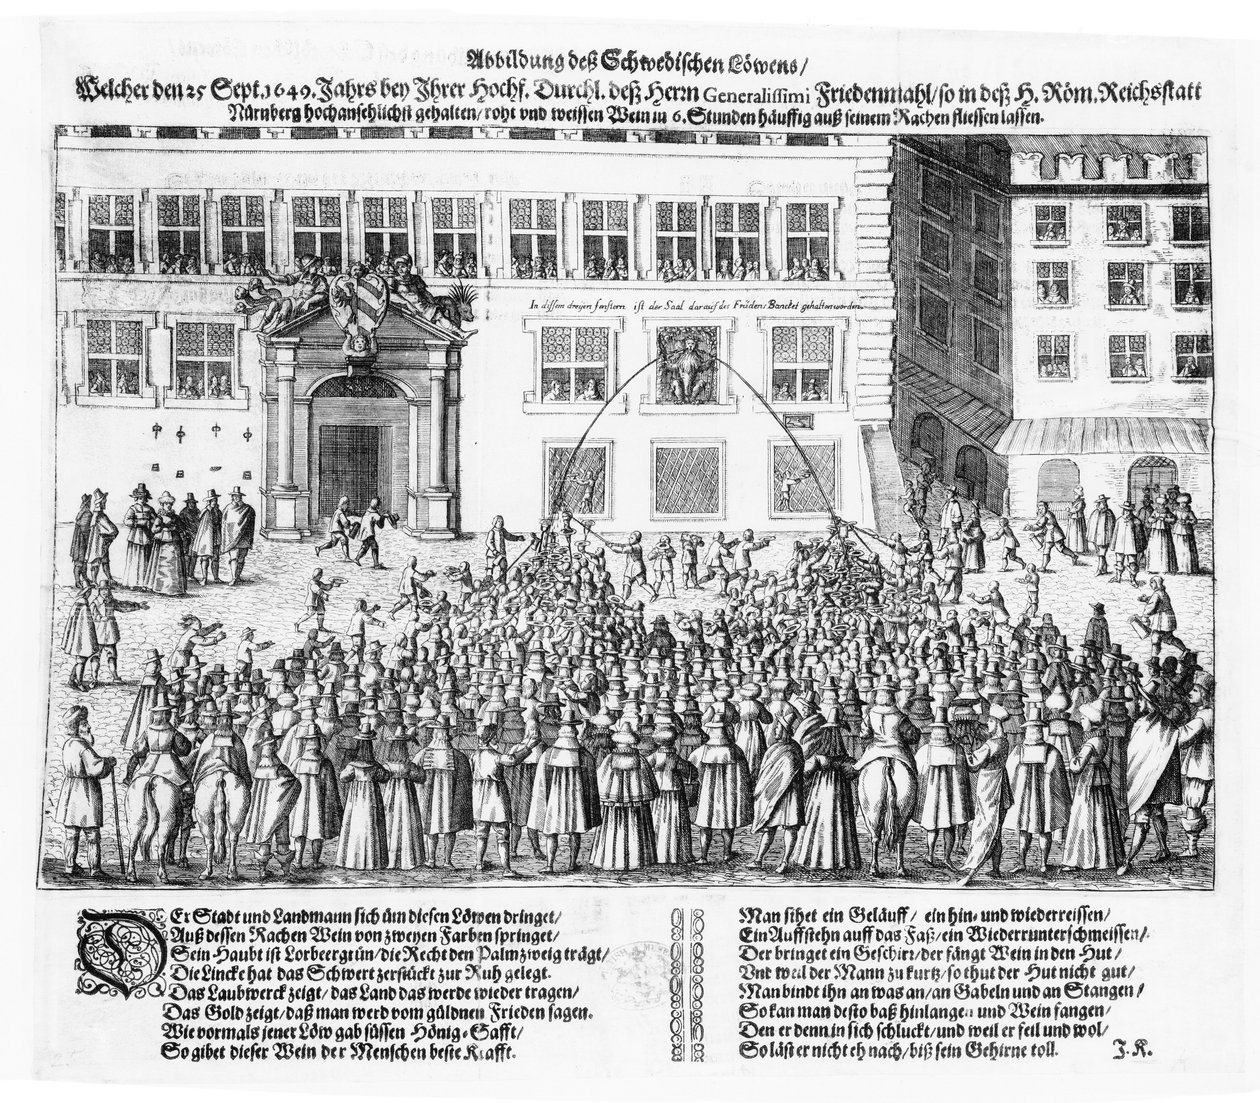 Abbildung deß Schwedischen Löwens/
Welcher den 25 Sept. 1649. Jahrs bey Ihrer Hochf. Durchl. deß Herrn Generalissimi Friedenmahl/ so in deß H. Röm. Reichsstatt
Nürnberg hochansehlichst gehalten/ roht vnd weissen Wein in 6. Stunden häuffig auß seinem Rachen fliessen lassen.
In dissem dreyen fenstern ist der Saal darauf des Friden/Banckel gehalten worden.
DEr Stadt und Landmann sich üm diesen Löwen dringet/
Auß dessen Rachen Wein von zweyen Farben springet/
Sein Haubt ist Lorbeergrün/ die Recht den Palmzweig trägt/
Die Lincke hat das Schwert zerstückt zur Ruh gelegt.
Das Laubwerck zeigt/ das Land das werde wieder tragen/
Das Gold zeigt/ daß man werd vom güldnen Frieden sagen.
Wie vormals jener Löw gab süssen Hönig-Safft/
So gibet dieser Wein der Menschen beste Krafft.
Man sihet ein Geläuff/ ein hin- und wiederreissen/
Ein Auffstehn auff das Faß/ ein Wiederrunterschmeissen/
Der bringet ein Geschirr/ der fängt Wein in den Hut/
Vnt weil der Mann zu kurtz/ so thut der Hut nicht gut/
Man bindt ihn an was an/ an Gabeln und an Stangen/
So kan man desto baß hinlangen und Wein fangen/
Den er denn in sich schluckt/ und weil er feil und wol/
So läst er nicht eh nach/ biß sein Gehirne toll.
J. K.